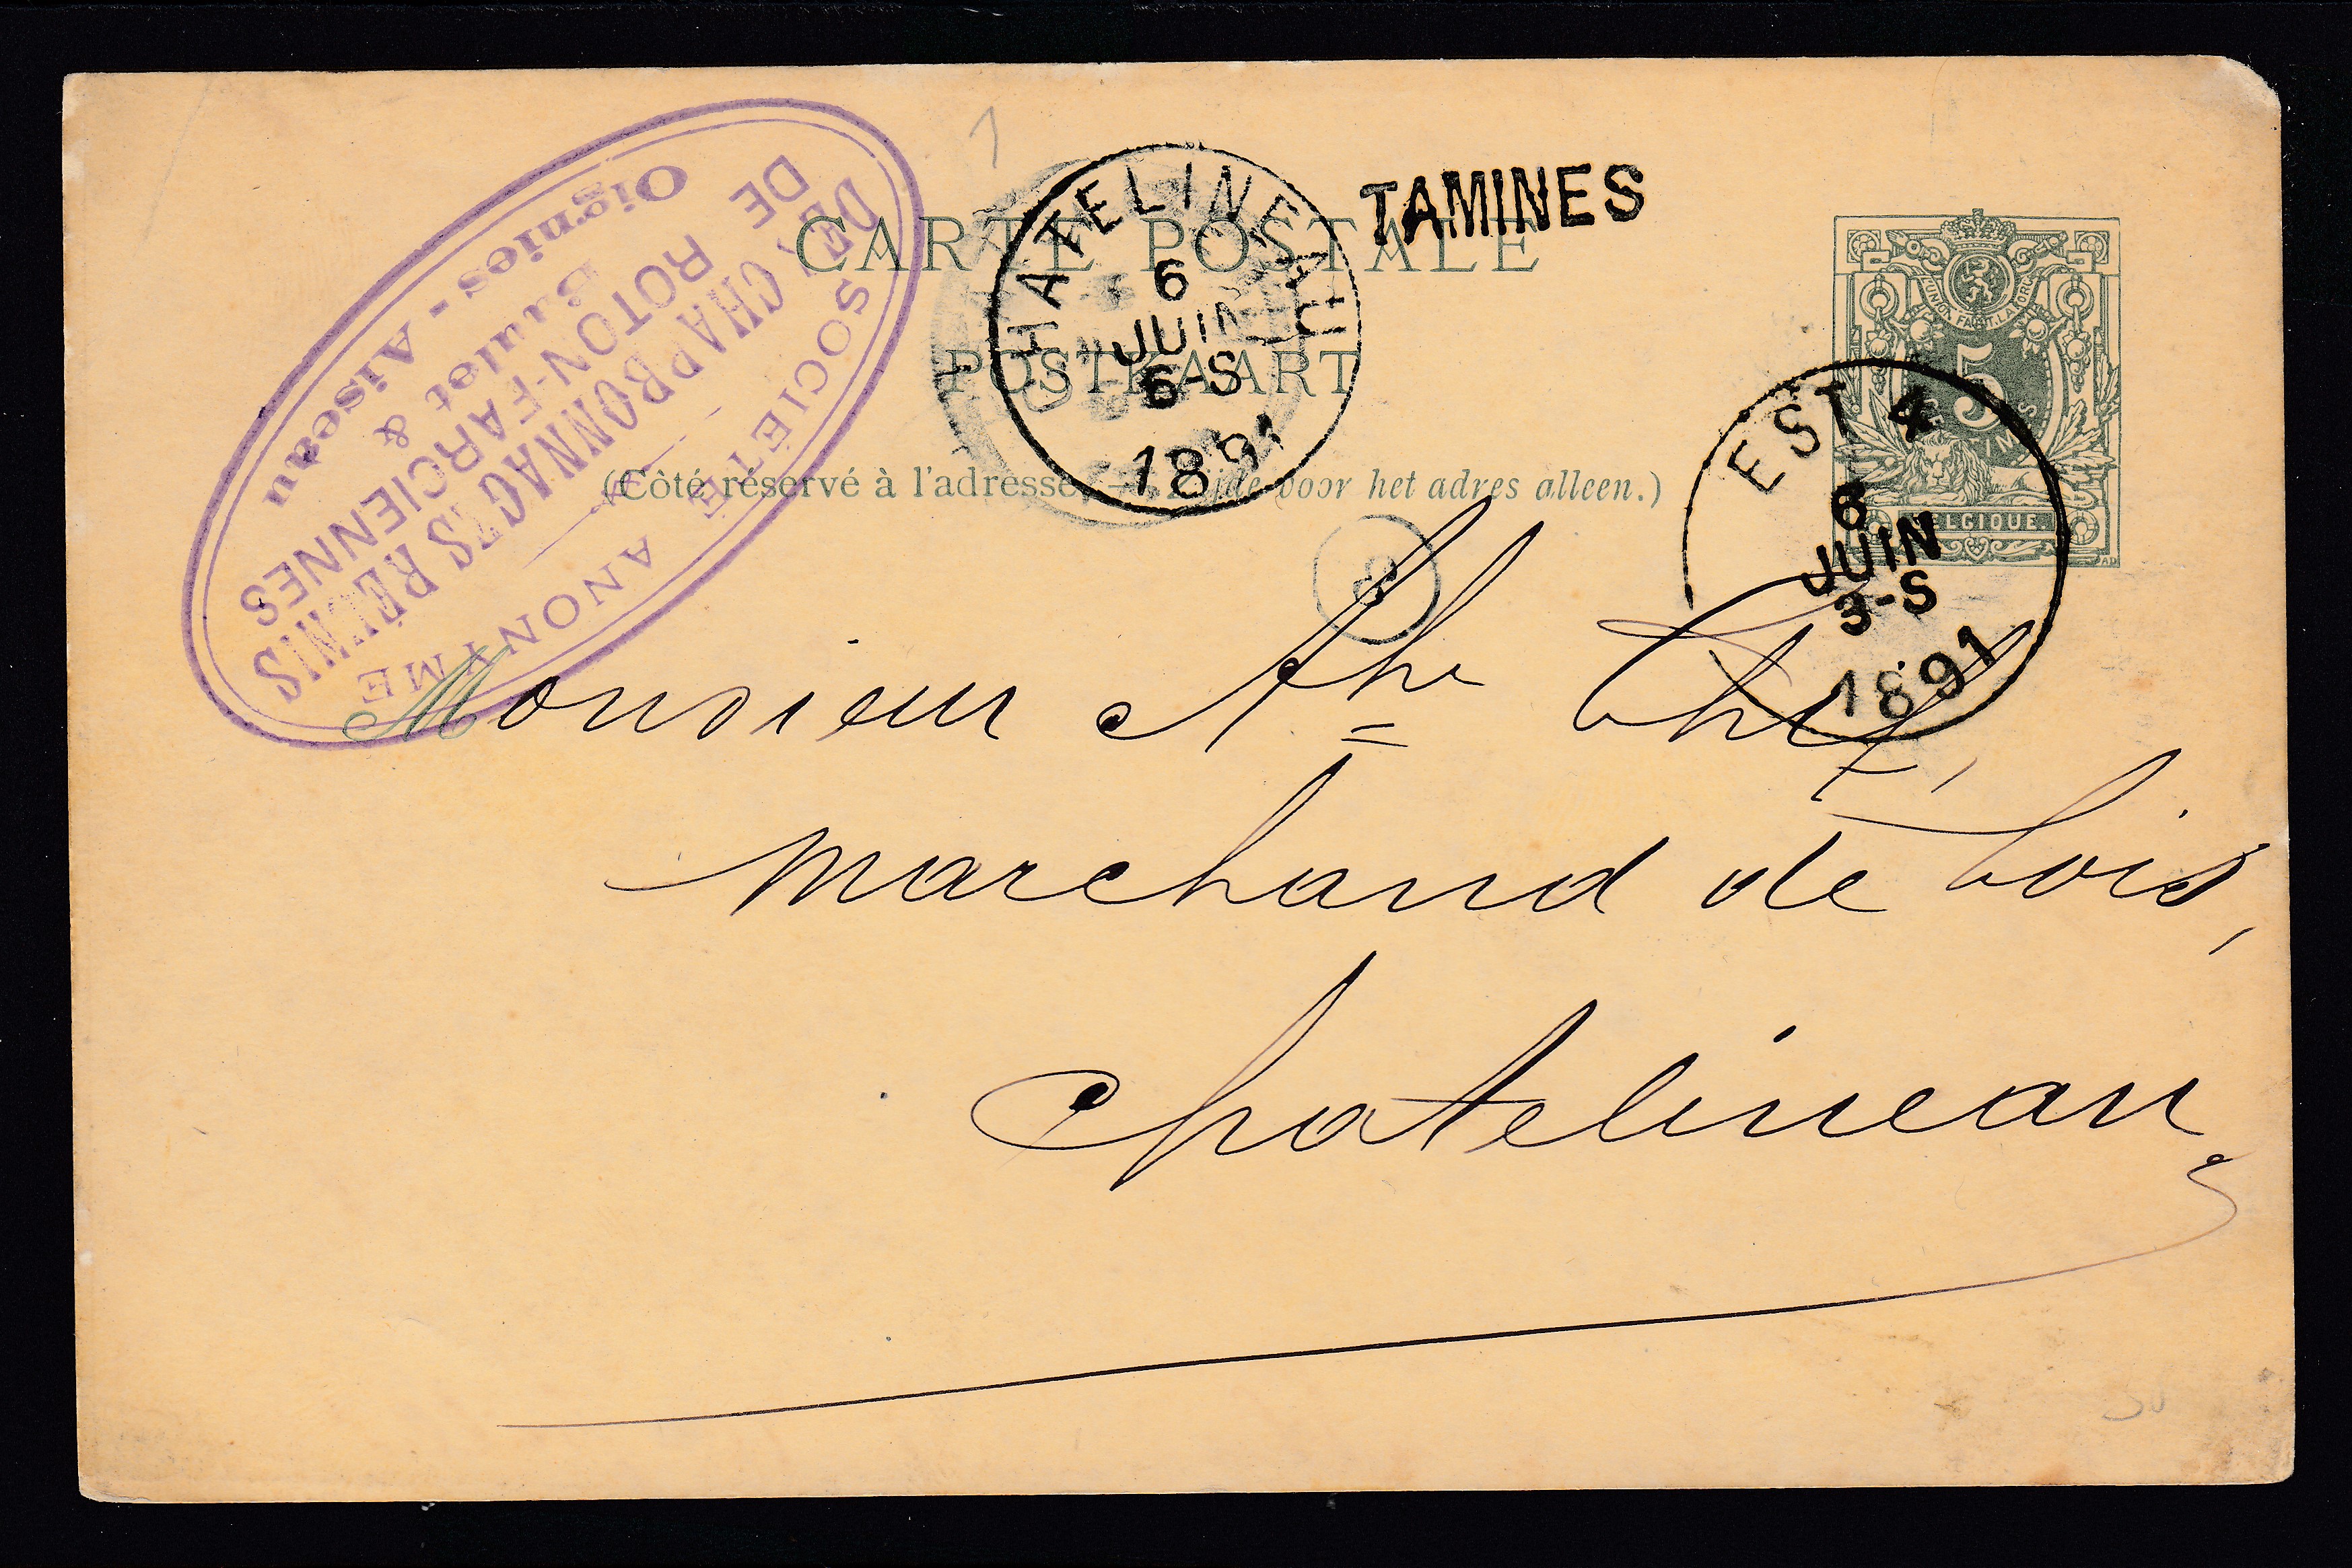 SOCIÉTÉ ANONYME
DES CHARBONNAGES RÉUNIS
DE ROTON-FARCIENNES
Baulet &
Oignies - Aiseau
CHATELINEAU
6
JUIN
6-S
1891
TAMINES
CARTE POSTALE
POSTKAART
(Côté réservé à l'adresse. — Zijde voor het adres alleen.)
L'UNION FAIT LA FORCE
5
CENTIMES
BELGIQUE
EST 4
6
JUIN
3-S
1891
8
Monsieur
marchand de bois,
Chatelineau